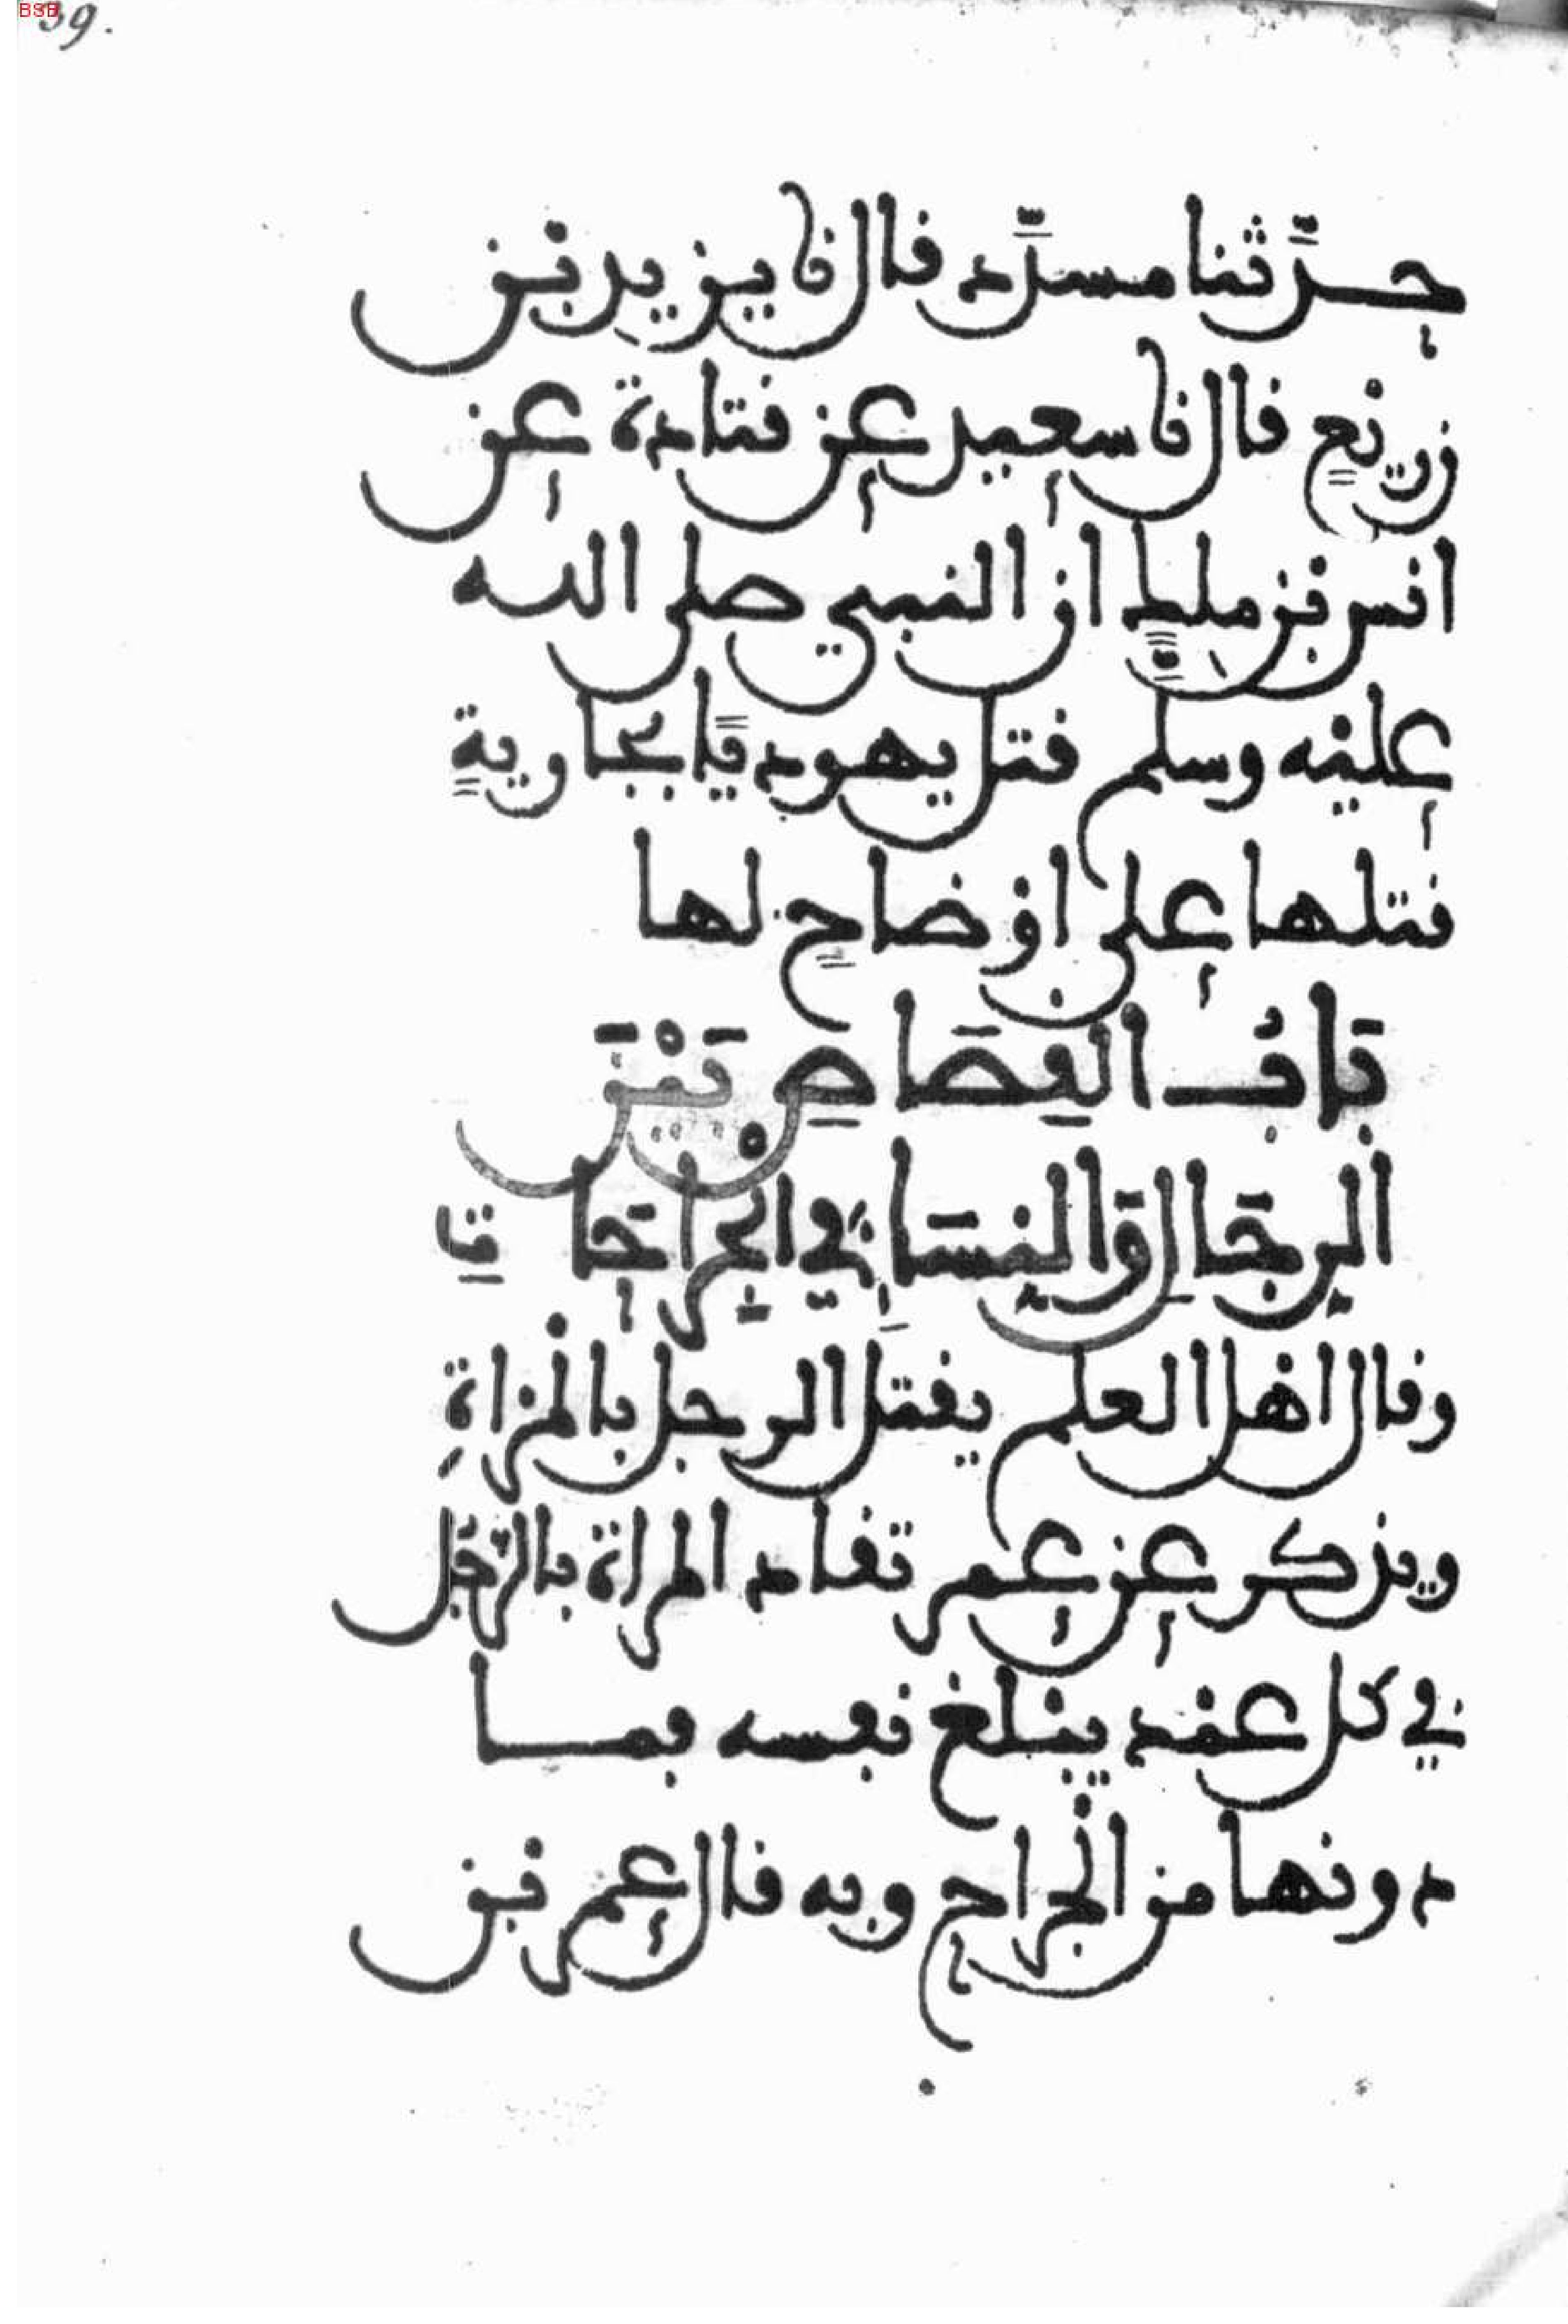 BSB
39.
حدّثنا مسدّد قال نا يزيد بن
زريع قال نا سعيد عن قتادة عن
انس بن ملك ان النبي صلى الله
عليه وسلم قتل يهوديّا بجارية
قتلها على اوضاح لها
بَابُ القِصَاصِ بَيْنَ
الرِجَالِ وَالنِسَاءِ في الجِرَاحَاتِ
وقال اهل العلم يقتل الرجل بالمراة
ويذكر عن عمر تقاد المراة بالرّجُل
في كل عمد يبلغ نفسه فما
دونها من الجراح وبه قال عمر بن